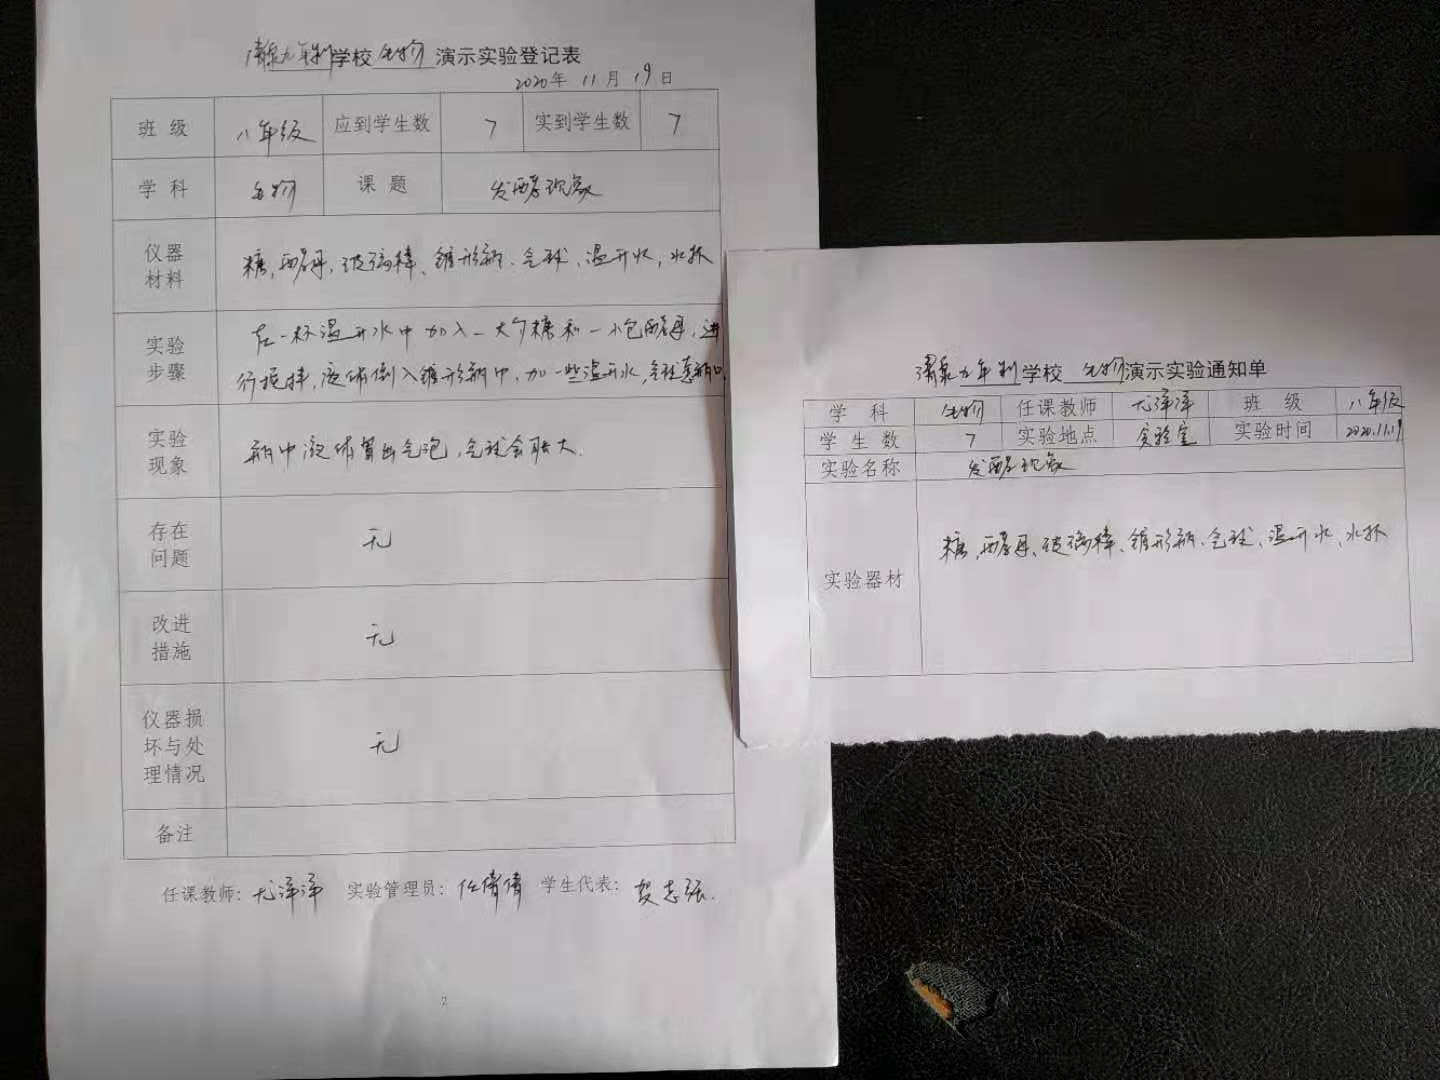 清泉九年制学校 生物 演示实验登记表
2020年 11月 19日
班 级 八年级 应到学生数 7 实到学生数 7
学 科 生物 课 题 发酵现象
仪器
材料
糖、酵母、玻璃棒、锥形瓶、气球、温开水、水杯
实验
步骤
在一杯温开水中加入一大勺糖和一小包酵母,进
行搅拌,液体倒入锥形瓶中,加一些温开水,气球套瓶口
实验
现象
瓶中液体冒出气泡,气球会胀大.
存在
问题
无
改进
措施
无
仪器损
坏与处
理情况
无
备注
任课教师: 尤洋洋 实验管理员: 任倩倩 学生代表: 贺志强.
2
清泉九年制学校 生物 演示实验通知单
学 科 生物 任课教师 尤洋洋 班 级 八年级
学 生 数 7 实验地点 实验室 实验时间 2020.11.19
实验名称 发酵现象
实验器材
糖、酵母、玻璃棒、锥形瓶、气球、温开水、水杯